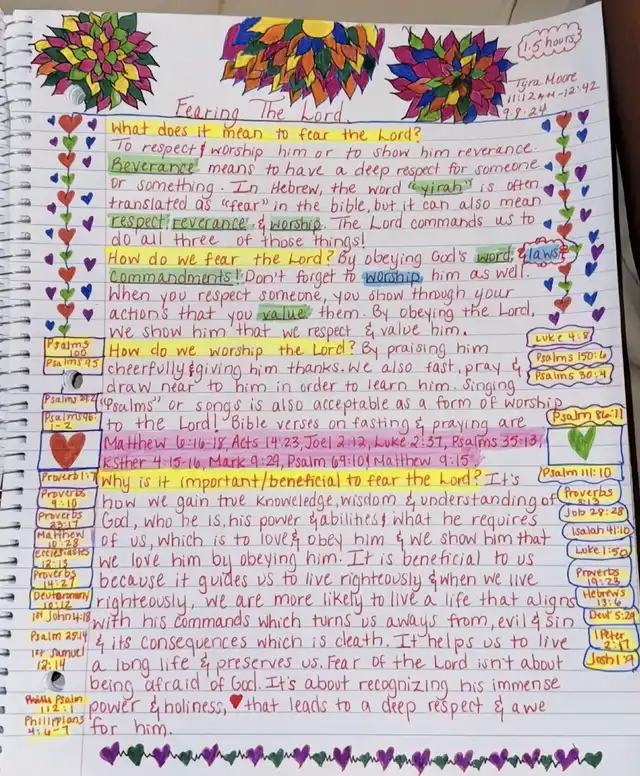 1.5 hours
Tyra Moore
11:12AM-12:42
9.8.24
Fearing The Lord
What does it mean to fear the Lord?
To respect & worship him or to show him reverance.
Reverance means to have a deep respect for someone
or something. In Hebrew, the word "yirah" is often
translated as "fear" in the bible, but it can also mean
respect, reverance, & worship. The Lord commands us to
do all three of those things!
How do we fear the Lord? By obeying God's word, & laws
commandments! Don't forget to worship him as well.
When you respect someone, you show through your
actions that you value them. By obeying the Lord,
we show him that we respect & value him.
How do we worship the Lord? By praising him
cheerfully & giving him thanks. We also fast, pray &
draw near to him in order to learn him. Singing
"Psalms" or songs is also acceptable as a form of worship
to the Lord! Bible verses on fasting & praying are
Matthew 6:16-18, Acts 14:23, Joel 2:12, Luke 2:37, Psalms 35:13,
Esther 4:15-16, Mark 9:29, Psalm 69:10 & Matthew 9:15.
Why is it important/beneficial to fear the Lord? It's
how we gain true knowledge, wisdom & understanding of
God, who he is, his power & abilities & what he requires
of us, which is to love & obey him & we show him that
we love him by obeying him. It is beneficial to us
because it guides us to live righteously & when we live
righteously, we are more likely to live a life that aligns
with his commands which turns us aways from, evil & sin
& its consequences which is death. It helps us to live
a long life & preserves us. Fear of the Lord isn't about
being afraid of God. It's about recognizing his immense
power & holiness, that leads to a deep respect & awe
for him.
Psalms
100
Psalms 95
Psalms 46:
1-2
Proverb 1:7
Proverbs
9:10
Proverbs
23:17
Matthew
10:28
Ecclesiastes
12:13
Proverbs
14:27
Deuteronomy
10:12
1st John 4:18
Psalm 25:14
1st Samuel
12:14
Psalm
112:1
Philippians
4:6-7
Luke 4:8
Psalms 150:6
Psalms 30:4
Psalm 86:11
Psalm 111:10
Proverbs
8:13
Job 28:28
Isaiah 41:10
Luke 1:50
Proverbs
19:23
Hebrews
13:6
Deut 5:29
1 Peter
2:17
Josh 1:9